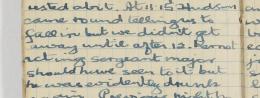 rested abit. At 11.15 Hudson
came round telling us to
fall in but we didn't get
away until after 12.
acting sergeant major
should have seen to it but
he was evidently drunk
again. Previous night